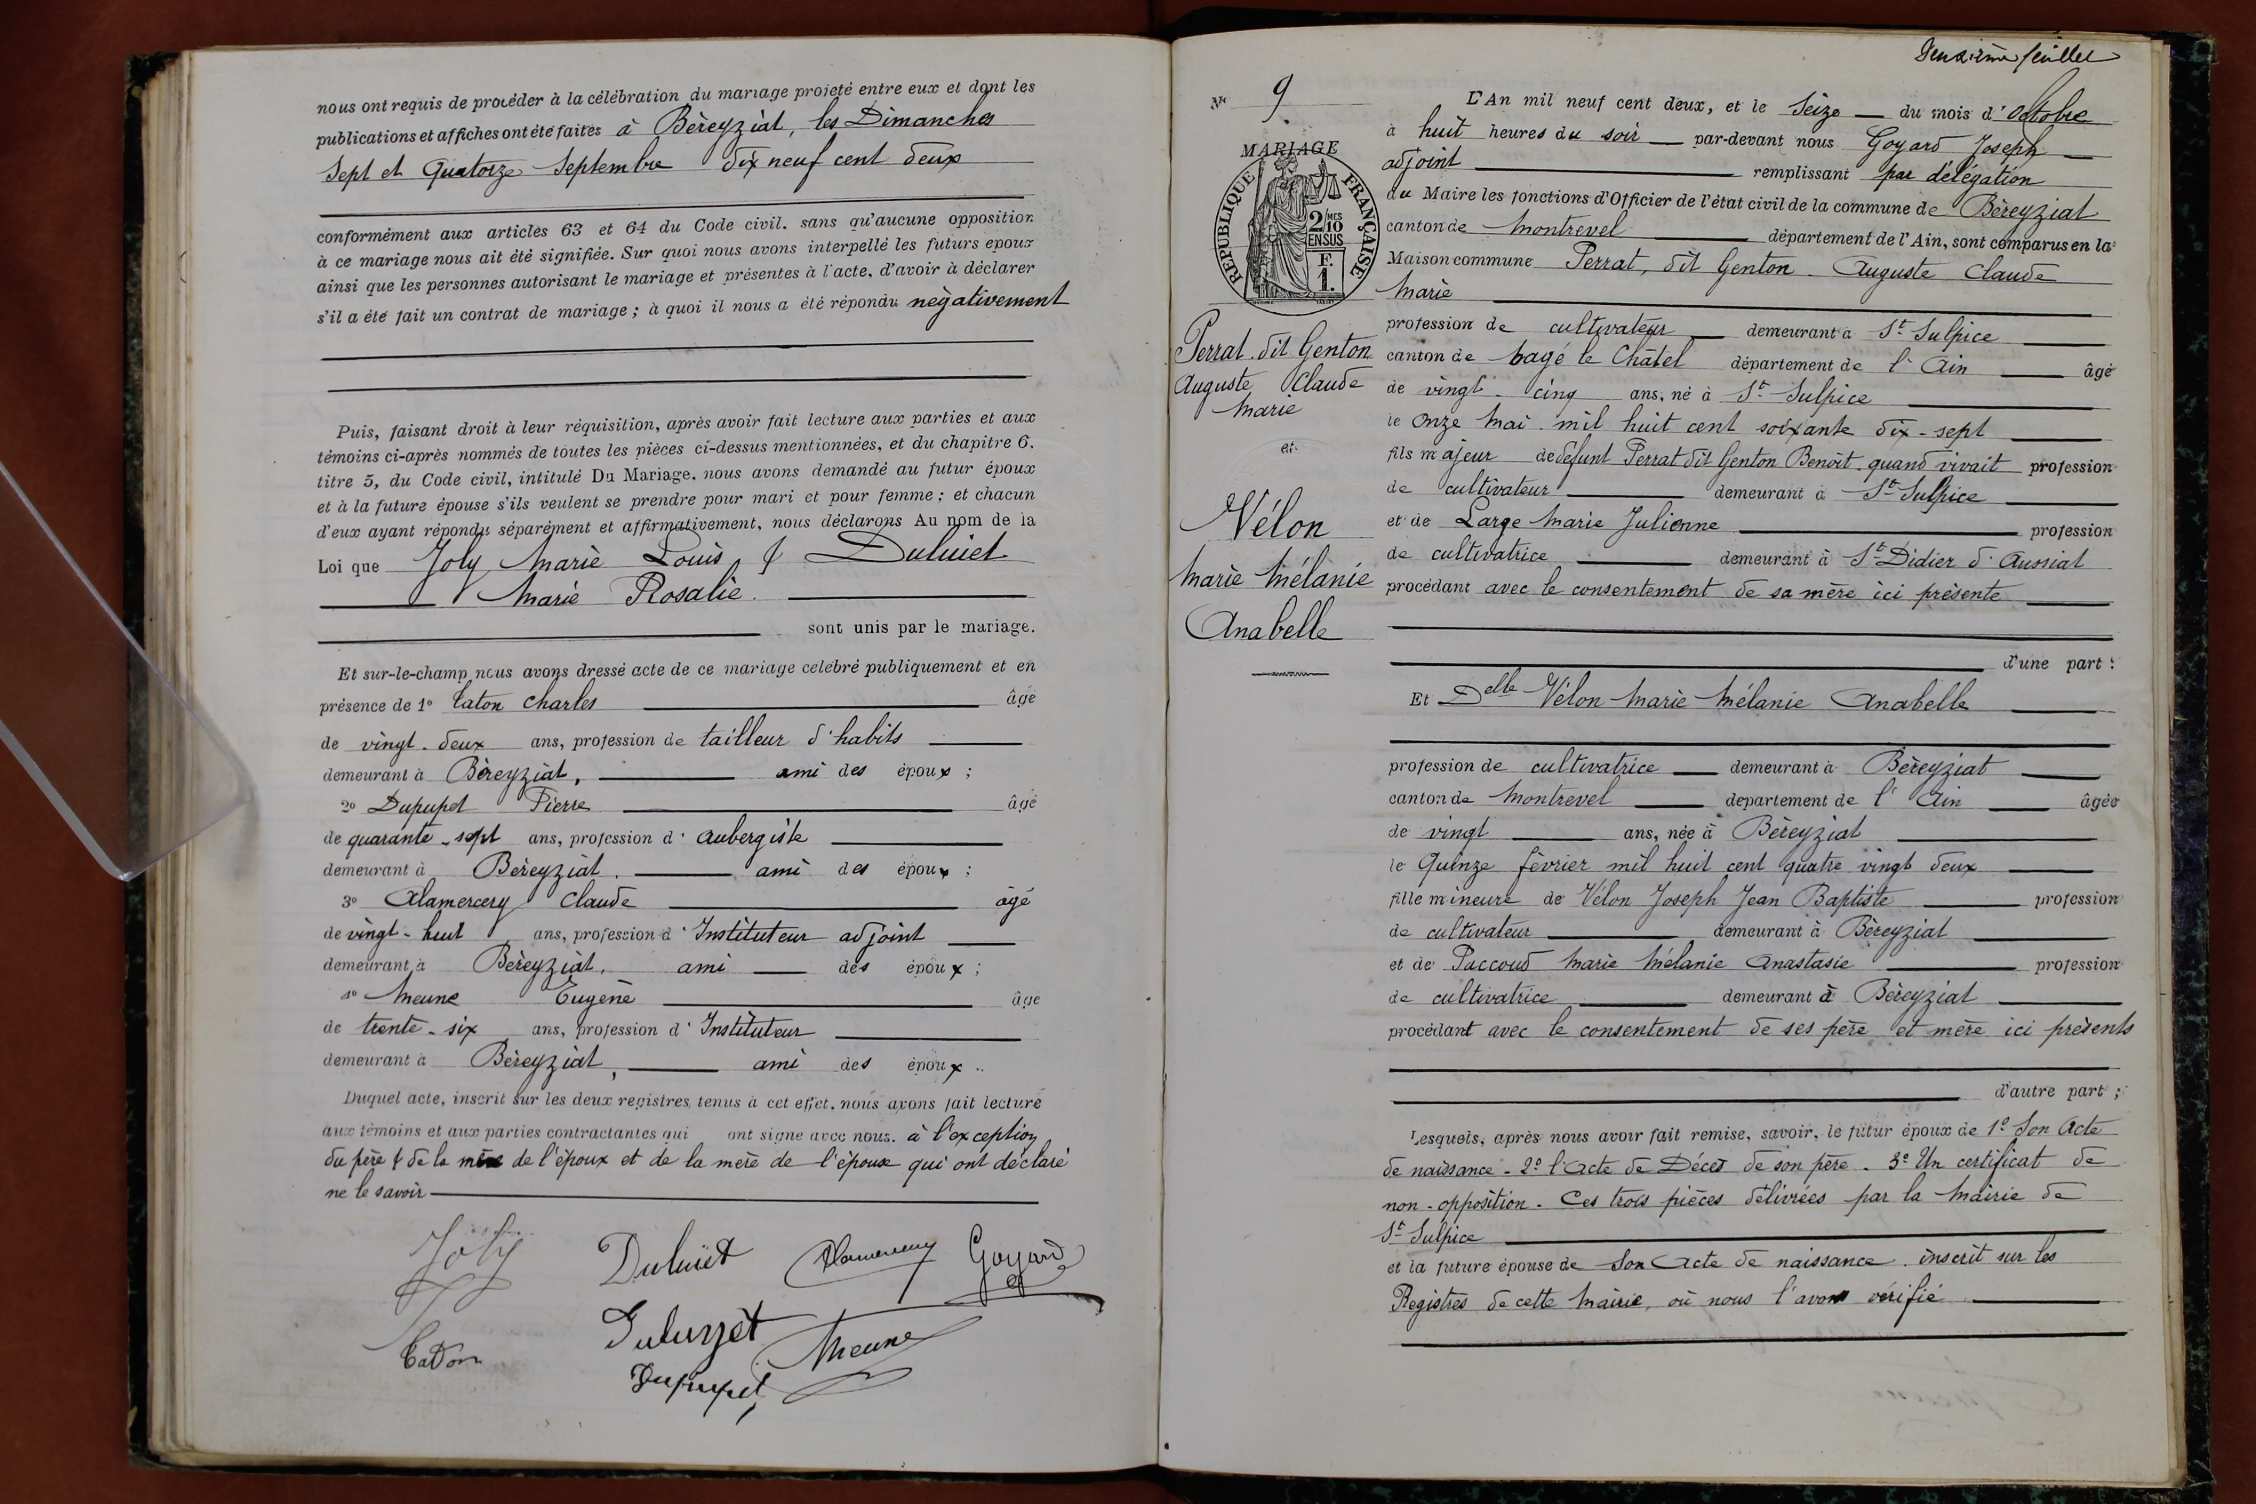 nous ont requis de procéder à la célébration du mariage projeté entre eux et dont les
publications et affiches ont été faites à Béreyziat, les Dimanches
Sept et Quatorze Septembre dix neuf cent deux
conformément aux articles 63 et 64 du Code civil. sans qu'aucune opposition
à ce mariage nous ait été signifiée. Sur quoi nous avons interpellé les futurs époux
ainsi que les personnes autorisant le mariage et présentes à l'acte, d'avoir à déclarer
s'il a été fait un contrat de mariage ; à quoi il nous a été répondu négativement
Puis, faisant droit à leur réquisition, après avoir fait lecture aux parties et aux
témoins ci-après nommés de toutes les pièces ci-dessus mentionnées, et du chapitre 6,
titre 5, du Code civil, intitulé Du Mariage, nous avons demandé au futur époux
et à la future épouse s'ils veulent se prendre pour mari et pour femme ; et chacun
d'eux ayant répondu séparément et affirmativement, nous déclarons Au nom de la
Loi que Joly Marie Louis & Duluiet
Marie Rosalie
sont unis par le mariage.
Et sur-le-champ nous avons dressé acte de ce mariage célébré publiquement et en
présence de 1° Caton Charles âgé
de vingt-deux ans, profession de tailleur d'habits
demeurant à Béreyziat, ami des époux ;
2° Dupupet Pierre âgé
de quarante-sept ans, profession d'aubergiste
demeurant à Béreyziat. ami des époux ;
3° Alamercery Claude âgé
de vingt-huit ans, profession d'Instituteur adjoint
demeurant à Béreyziat. ami des époux ;
4° Meune Eugène âgé
de trente-six ans, profession d'Instituteur
demeurant à Béreyziat, ami des époux.
Duquel acte, inscrit sur les deux registres tenus à cet effet, nous avons fait lecture
aux témoins et aux parties contractantes qui ont signé avec nous. à l'exception
du père & de la mère de l'époux et de la mère de l'épouse qui ont déclaré
ne le savoir
Joly Duluiet Alamercery Goyard
Caton Dupupet Meune
Deuxième feuillet
N° 9
MARIAGE
RÉPUBLIQUE FRANÇAISE
2/10 MES
EN SUS
F.
1.
Perrat dit Genton
Auguste Claude
Marie
et
Vélon
Marie Mélanie
Anabelle
L'An mil neuf cent deux, et le Seize du mois d'Octobre
à huit heures du soir par-devant nous Goyard Joseph
adjoint remplissant par délégation
du Maire les fonctions d'Officier de l'état civil de la commune de Béreyziat
canton de Montrevel département de l'Ain, sont comparus en la
Maison commune Perrat, dit Genton Auguste Claude
Marie
profession de cultivateur demeurant à St Sulpice
canton de bagé le Châtel département de l'Ain âgé
de vingt-cinq ans, né à St Sulpice
le Onze Mai mil huit cent soixante dix-sept
fils majeur de défunt Perrat dit Genton Benoît quand vivait profession
de cultivateur demeurant à St Sulpice
et de Large Marie Julienne profession
de cultivatrice demeurant à St Didier d'Aussiat
procédant avec le consentement de sa mère ici présente
d'une part ;
Et Delle Vélon Marie Mélanie Anabelle
profession de cultivatrice demeurant à Béreyziat
canton de Montrevel département de l'Ain âgée
de vingt ans, née à Béreyziat
le Quinze février mil huit cent quatre vingt deux
fille mineure de Vélon Joseph Jean Baptiste profession
de cultivateur demeurant à Béreyziat
et de Paccoud Marie Mélanie Anastasie profession
de cultivatrice demeurant à Béreyziat
procédant avec le consentement de ses père et mère ici présents
d'autre part ;
Lesquels, après nous avoir fait remise, savoir, le futur époux de 1° Son Acte
de naissance - 2° l'Acte de Décès de son père - 3° Un certificat de
non-opposition. Ces trois pièces délivrées par la Mairie de
St Sulpice
et la future épouse de Son Acte de naissance inscrit sur les
Registres de cette Mairie, où nous l'avons vérifié